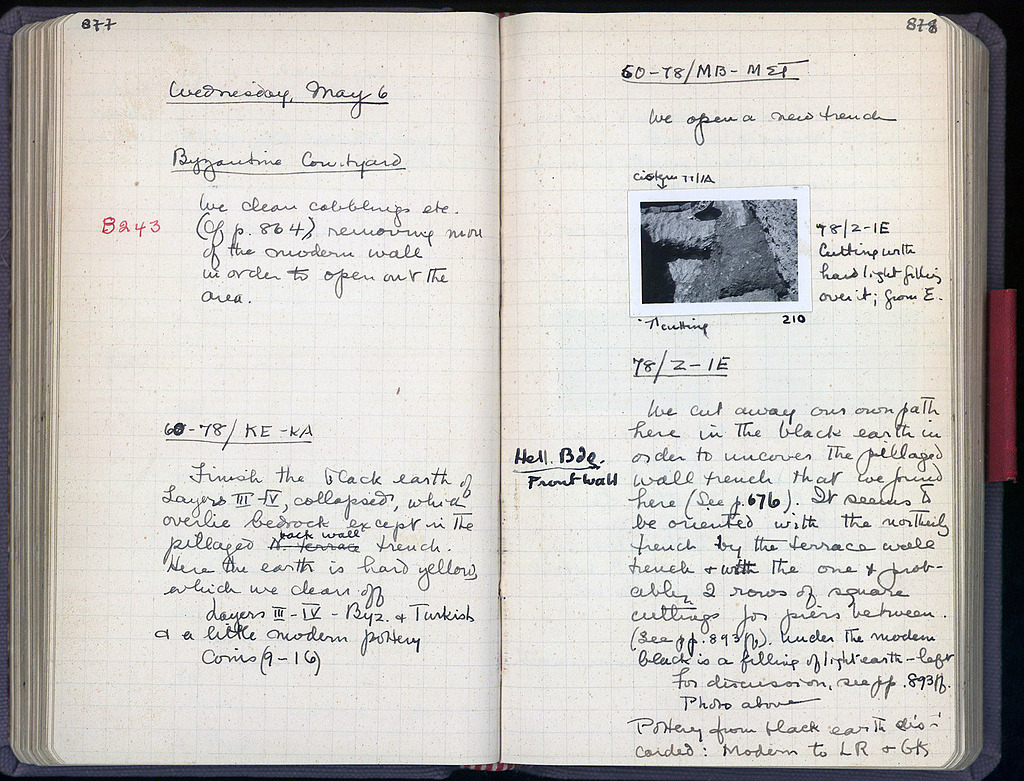 877
Wednesday, May 6
Byzantine Courtyard
We clean cobblings etc.
B243
(Cf p. 864), removing more
of the modern wall
in order to open out the
area.
60-78/KE-KA
Finish the black earth of
Layers III-IV, collapsed, which
overlie bedrock except in the
back wall
pillaged N. terrace trench.
Here the earth is hard yellow,
which we clean off
Layers III-IV - Byz. & Turkish
& a little modern pottery
Coins (9-16)
878
60-78/MB-MΣΤ
We open a new trench
cistern 77/1A
78/Z-1E
Cutting with
hard light filling
over it; from E.
↑ cutting
210
78/Z-1E
We cut away our own path
here in the black earth in
order to uncover the pillaged
Hell. Bdg.
Front wall
wall trench that we found
here (See p. 676). It seems to
be oriented with the northerly
trench by the terrace wall
trench & with the one & prob-
ably 2 rows of square
cuttings for piers between.
(See pp. 893ff). Under the modern
black is a filling of light earth - left
For discussion, see pp. 893ff.
Photo above
Pottery from black earth dis-
carded: Modern to LR & GK